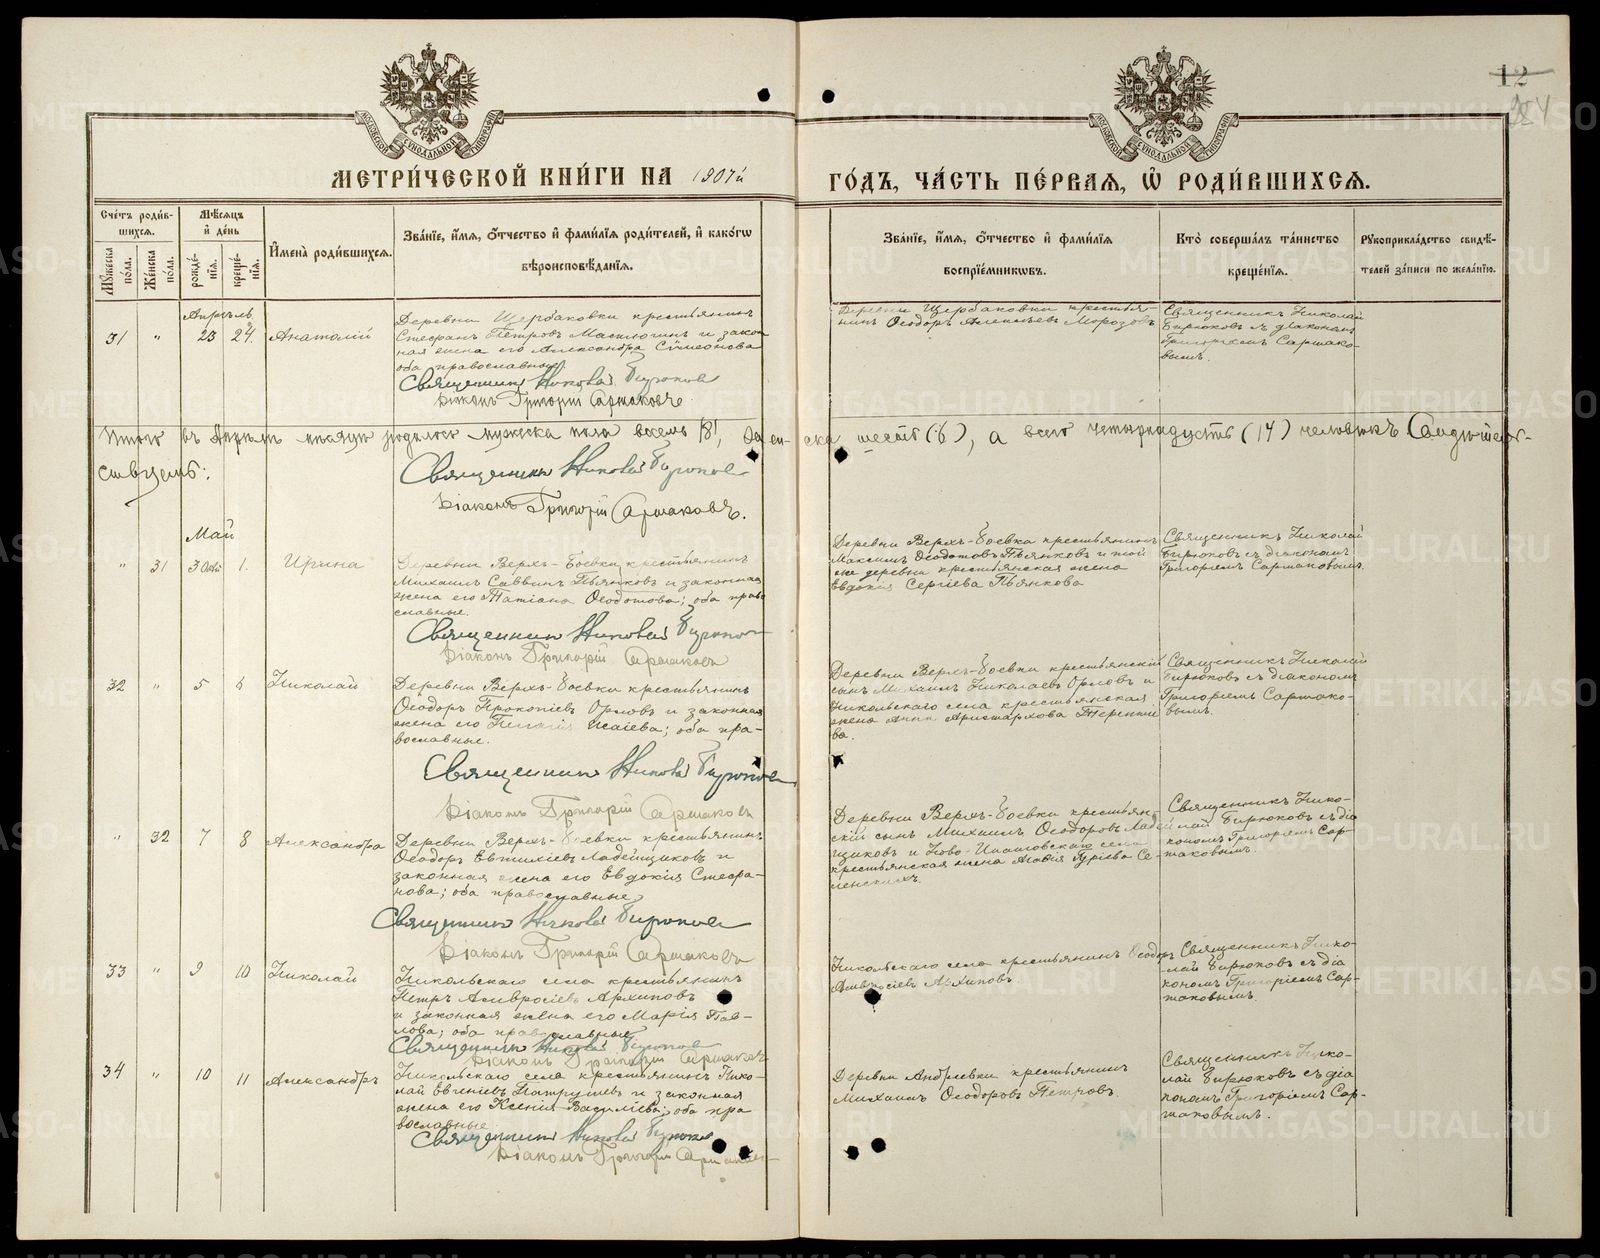 12
МЕТРИ́ЧЕСКОЙ КНИ́ГИ НА 1907й ГО́ДЪ, ЧА́СТЬ ПЕ́РВАЯ, Ѡ РОДИ́ВШИХСЯ.
Сче́тъ роди́в-
шихся.
Мꙋ́жеска по́ла.
Же́нска по́ла.
Мѣ́сяцъ
и́ де́нь
рожде́-нїя.
креще́-нїя.
И҆мена̀ роди́вшихся.
Зва́нїе, и́мя, о́тчество и́ фами́лїя роди́телей, и́ како́гѡ
вѣроисповѣ́данїя.
Зва́нїе, и́мя, о́тчество и́ фами́лїя
воспрїе́мникѡвъ.
Кто̀ соверша́лъ та́инство
креще́нїя.
Рꙋкоприкла́дство свидѣ́-
телей за́писи по жела́нїю.
Апрѣль
31 " 23 24. Анатолій
Деревни Щербаковки крестьянинъ
Стефанъ Петровъ и закон
ная жена его Александра Сѵмеонова
оба православные
Священникъ Николай Бирюковъ
Діаконъ Григорій Сармаковъ
Деревни Щербаковки крестья-
нинъ Ѳеодоръ Морозовъ
Священникъ Николай
Бирюковъ съ діакономъ
Григоріемъ Сармако-
вымъ.
Итого въ Апрѣлѣ мѣсяцѣ родилось мужеска пола восемь /8/, женска шесть (6), а всего четырнадцать (14) человѣкъ
Священникъ Николай Бирюковъ
Діаконъ Григорій Сармаковъ.
Май
" 31 1. Ирина
Деревни Верхъ-Боевка крестьянинъ
Михаилъ Саввинъ Пьянковъ и законная
жена его Татіана Ѳеодотова; оба право
славные.
Священникъ Николай Бирюковъ
Діаконъ Григорій Сармаковъ
Деревни Верхъ-Боевка крестьянинъ
Максимъ Ѳеодотовъ Пьянковъ и той
же деревни крестьянская жена
Евдокія Сергіева Пьянкова
Священникъ Николай
Бирюковъ съ діакономъ
Григоріемъ Сармаковымъ.
32 " 5 6 Николай
Деревни Верхъ-Боевки крестьянинъ
Ѳеодоръ Прокопіевъ Орловъ и законная
жена его Исаіева; оба пра-
вославные.
Священникъ Николай Бирюковъ
Діаконъ Григорій Сармаковъ
Деревни Верхъ-Боевки крестьянскій
сынъ Михаилъ Николаевъ Орловъ и
Никольскаго села крестьянская
жена Анна Аристархова Терентье
ва.
Священникъ Николай
Бирюковъ съ діакономъ
Григоріемъ Сармако-
вымъ.
" 32 7 8 Александра
Деревни Верхъ-Боевки крестьянинъ
Ѳеодоръ Евтихіевъ Ладейщиковъ и
законная жена его Евдокія Стефа-
нова; оба православные
Священникъ Николай Бирюковъ
Діаконъ Григорій Сармаковъ
Деревни Верхъ-Боевки крестьян-
скій сынъ Михаилъ Ѳеодоровъ Ладей
щиковъ и Ново-Ипатовскаго села
крестьянская жена Агафія Гуріева Се-
Священникъ Нико-
лай Бирюковъ съ діа
кономъ Григоріемъ Сар-
маковымъ.
33 " 9 10 Николай
Никольскаго села крестьянинъ
Петръ Амвросіевъ Архиповъ
и законная жена его Марія Пав-
лова; оба православные
Священникъ Николай Бирюковъ
Діаконъ Григорій Сармаковъ
Никольскаго села крестьянинъ Ѳеодоръ
Амвросіевъ Архиповъ
Священникъ Нико-
лай Бирюковъ съ діа
кономъ Григоріемъ Сар-
маковымъ.
34 " 10 11 Александръ
Никольскаго села крестьянинъ Нико-
лай Евгеніевъ Патрушевъ и законная
жена его Ксенія Василіева; оба пра
вославные
Священникъ Николай Бирюковъ
Діаконъ Григорій Сармаковъ
Деревни Андреевки крестьянинъ
Михаилъ Ѳеодоровъ Петровъ.
Священникъ Нико-
лай Бирюковъ съ діа
кономъ Григоріемъ Сар-
маковымъ.
METRIKI.GASO-URAL.RU